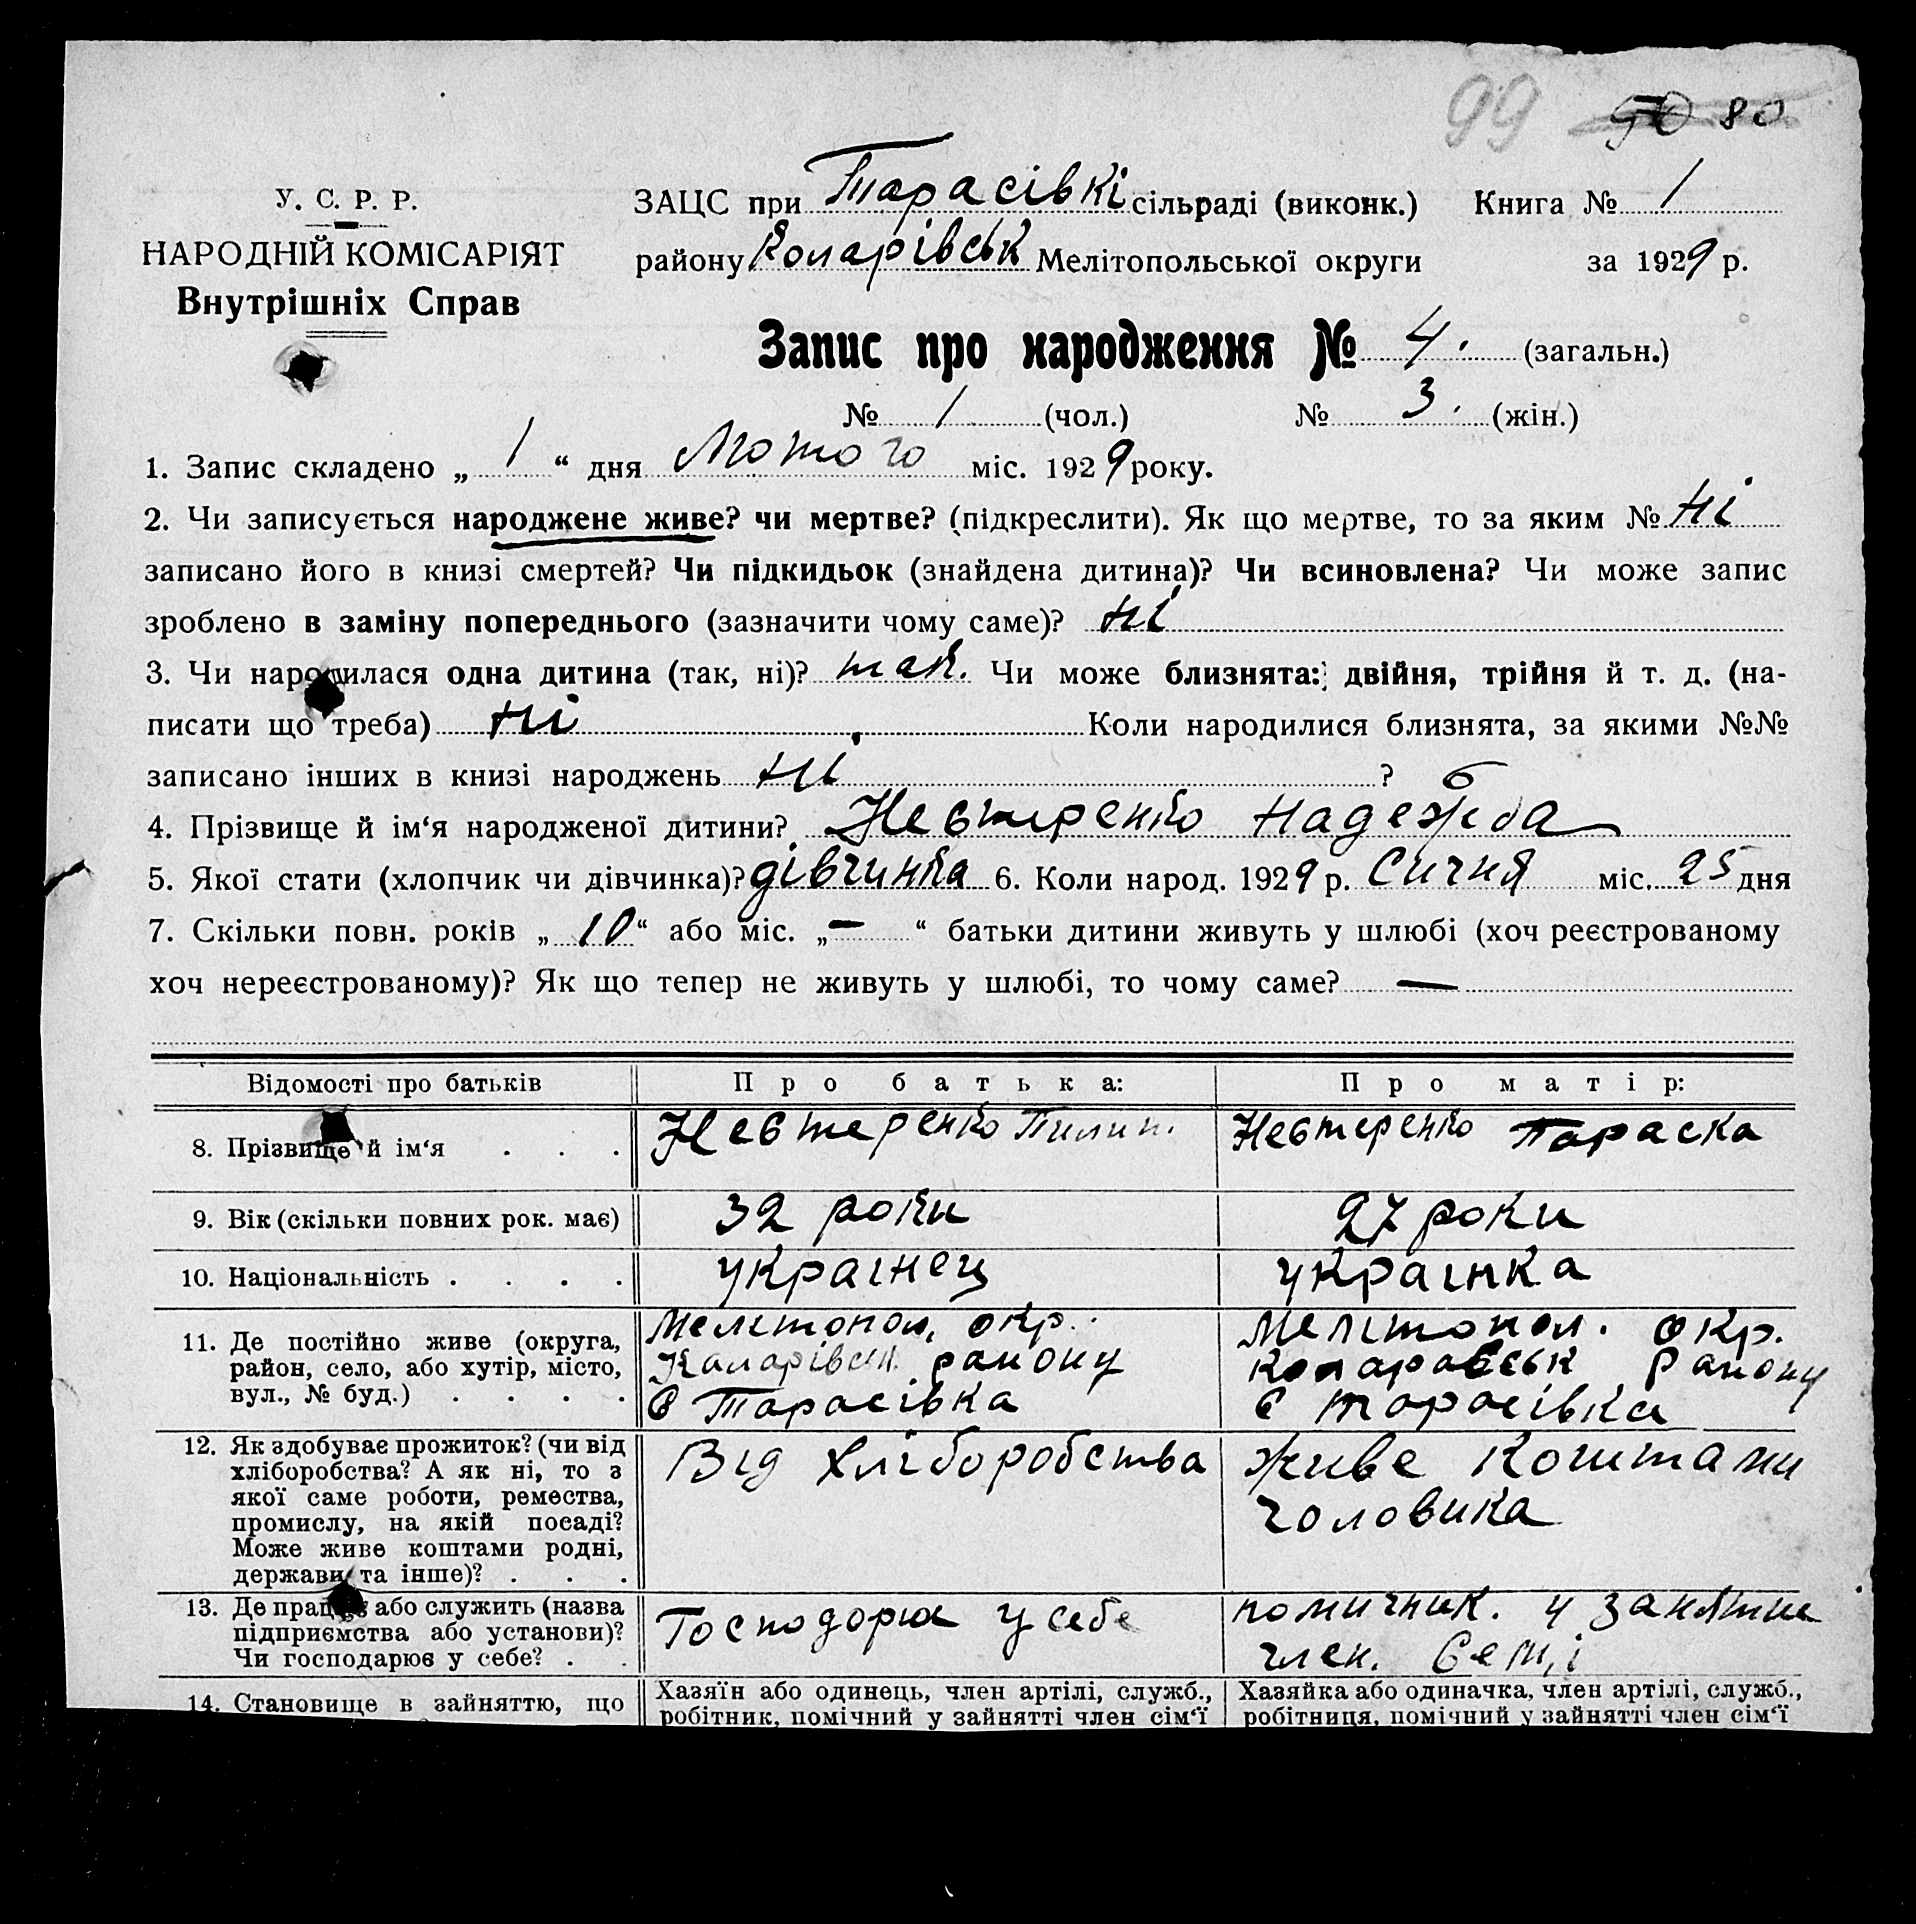 99 80
У. С. Р. Р.
НАРОДНІЙ КОМІСАРІЯТ
Внутрішніх Справ
ЗАЦС при Тарасівкі сільраді (виконк.) Книга № 1
району Коларівськ Мелітопольської округи за 1929 р.
Запис про народження № 4. (загальн.)
№ 1 (чол.) № 3. (жін.)
1. Запис складено „ 1 “ дня Лютого міс. 1929 року.
2. Чи записується народжене живе? чи мертве? (підкреслити). Як що мертве, то за яким № ні
записано його в книзі смертей? Чи підкидьок (знайдена дитина)? Чи всиновлена? Чи може запис
зроблено в заміну попереднього (зазначити чому саме)? ні
3. Чи народилася одна дитина (так, ні)? так. Чи може близнята: двійня, трійня й т. д. (на-
писати що треба) ні Коли народилися близнята, за якими №№
записано інших в книзі народжень ні ?
4. Прізвище й ім‘я народженої дитини? Нестеренко Надежда
5. Якої стати (хлопчик чи дівчинка)? дівчинка 6. Коли народ. 1929 р. Сичня міс. 25 дня
7. Скільки повн. років „ 10 “ або міс. „ — “ батьки дитини живуть у шлюбі (хоч реєстрованому
хоч нереєстрованому)? Як що тепер не живуть у шлюбі, то чому саме? —
Відомості про батьків Про батька: Про матір:
8. Прізвище й ім‘я . . . Нестеренко Пилип. Нестеренко Параска
9. Вік (скільки повних рок. має) 32 роки 27 роки
10. Національність . . . . украінец украінка
11. Де постійно живе (округа,
район, село, або хутір, місто,
вул., № буд.) . . . .
Мелітопол. окр.
Каларівськ. району
с Тарасівка
Мелітопол. окр.
району
с Тарасівка
12. Як здобуває прожиток? (чи від
хліборобства? А як ні, то з
якої саме роботи, ремества,
промислу, на якій посаді?
Може живе коштами родні,
держави та інше)? . . .
Від хліборобства
живе коштами
чоловика
13. Де працює або служить (назва
підприємства або установи)?
Чи господарює у себе? . .
Господорює у себе
помичник. у
член. Семі
14. Становище в зайняттю, що
Хазяїн або одинець, член артілі, служб.,
робітник, помічний у зайнятті член сім‘ї
Хазяйка або одиначка, член артілі, служб.,
робітниця, помічний у зайнятті член сім‘ї